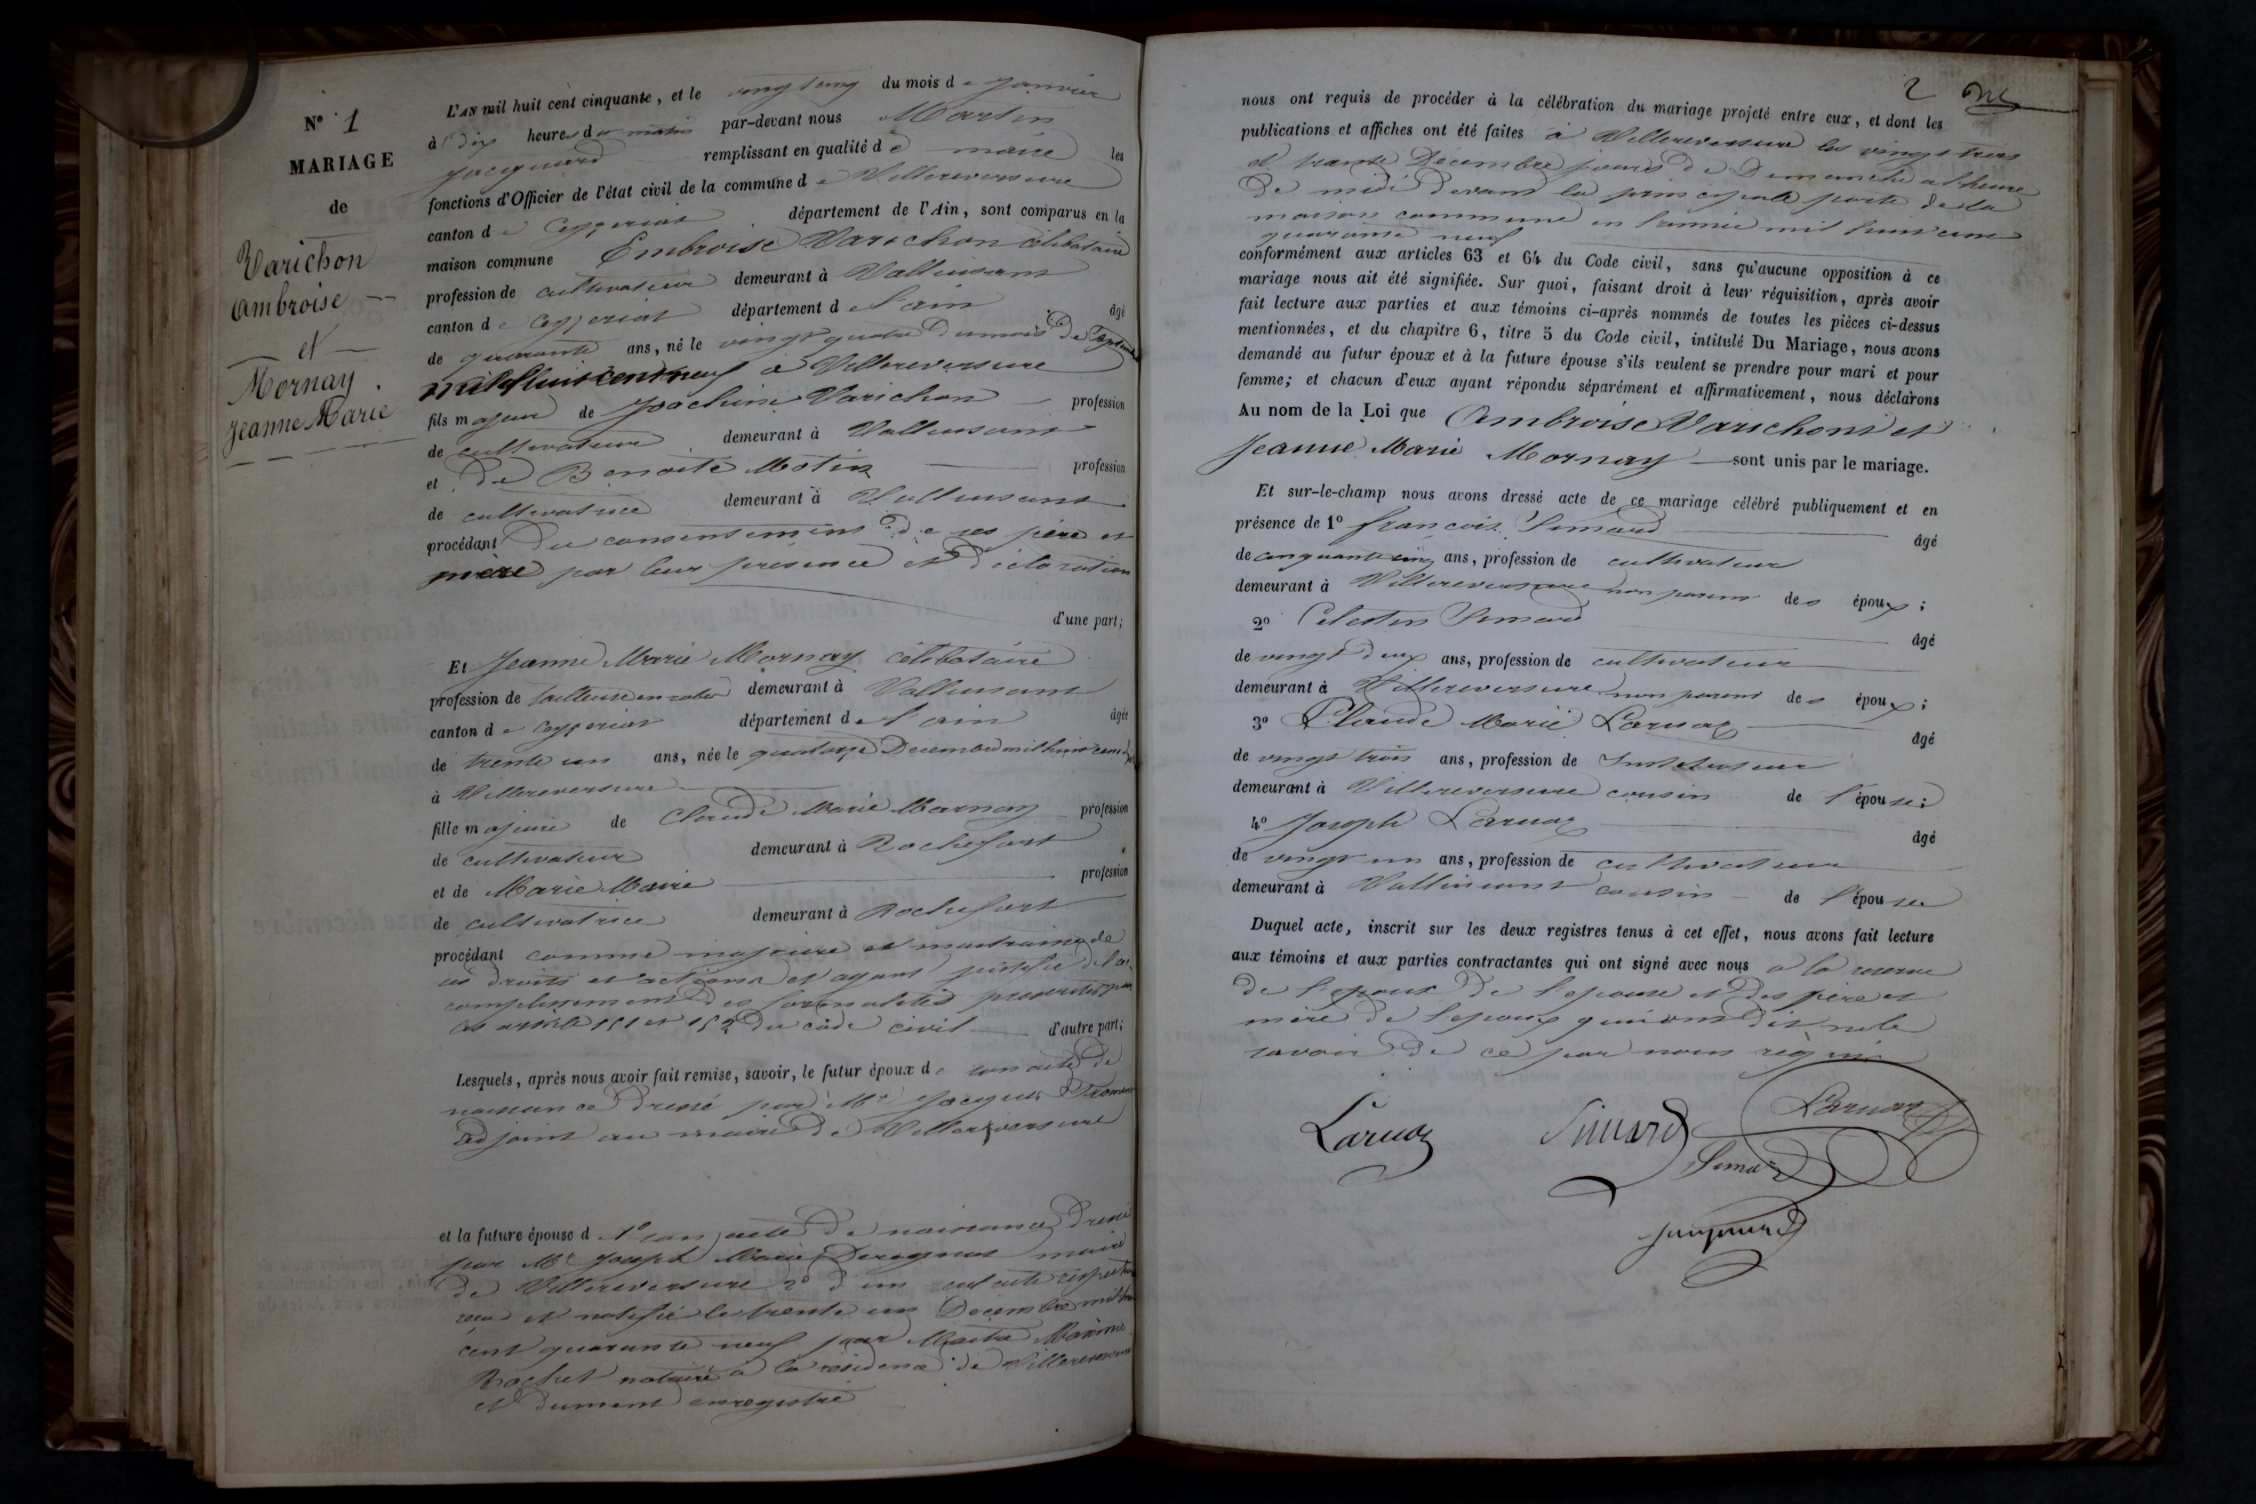 N° 1
MARIAGE
de
Varichon
Ambroise
et
Mornay
Jeanne Marie
L'AN mil huit cent cinquante, et le vingt cinq du mois de Janvier
à Dix heures du matin par-devant nous Martin
Jacquard remplissant en qualité de maire les
fonctions d'Officier de l'état civil de la commune de Villereversure
canton de Ceyzeriat département de l'Ain, sont comparus en la
maison commune Embroise Varichon célibataire
profession de cultivateur demeurant à Valleusant
canton de Ceyzeriat département de l'ain âgé
de quarante ans, né le vingt quatre du mois de Septembre
mil huit cent neuf à Villereversure
fils majeur de Joachim Varichon profession
de cultivateur demeurant à Valleusant
et de Benoite Motin profession
de cultivatrice demeurant à Valleusant
procédant du consentement de ses père et
mère par leur présence et déclaration
d'une part;
Et Jeanne Marie Mornay célibataire
profession de tailleuse en robes demeurant à Valleusant
canton de Ceyzeriat département de l'ain âgée
de trente un ans, née le quatorze Decembre mil huit cent
à Villereversure
fille majeure de Claude Marie Marnay profession
de cultivateur demeurant à Rochefort
et de Marie Maire profession
de cultivatrice demeurant à Rochefort
procédant comme majeure et maitraisse de
ses droits et actions et ayant justifié de l'ac-
complissement des formalités prescrites par
les article 151 et 152 du code civil d'autre part;
Lesquels, après nous avoir fait remise, savoir, le futur époux de son acte de
naissance dressé par Mr Jacques
adjoint au maire de Villereversure
et la future épouse d 1° son acte de naissance dressé
par Mr Joseph Marie maire
de Villereversure 2° d'un seul acte respectueux
reçu et notifié le trente un Decembre mil huit
cent quarante neuf par Maitre
Rochet notaire à la résidence de Villereversure
et dument enregistré
2
nous ont requis de procéder à la célébration du mariage projeté entre eux, et dont les
publications et affiches ont été faites à Villereversure les vingt trois
et trente Decembre jours de Dimanche à l'heure
de midi devant la principale porte de la
maison commune en l'année mil huit cent
quarante neuf
conformément aux articles 63 et 64 du Code civil, sans qu'aucune opposition à ce
mariage nous ait été signifiée. Sur quoi, faisant droit à leur réquisition, après avoir
fait lecture aux parties et aux témoins ci-après nommés de toutes les pièces ci-dessus
mentionnées, et du chapitre 6, titre 5 du Code civil, intitulé Du Mariage, nous avons
demandé au futur époux et à la future épouse s'ils veulent se prendre pour mari et pour
femme; et chacun d'eux ayant répondu séparément et affirmativement, nous déclarons
Au nom de la Loi que Ambroise Varichont et
Jeanne Marie Mornay sont unis par le mariage.
Et sur-le-champ nous avons dressé acte de ce mariage célébré publiquement et en
présence de 1° françois Simard âgé
de cinquante cinq ans, profession de cultivateur
demeurant à Villereversure non parent des époux;
2° Celestin Simard âgé
de vingt deux ans, profession de cultivateur
demeurant à Villereversure non parent des époux;
3° Claude Marie Larnaz âgé
de vingt trois ans, profession de Instituteur
demeurant à Villereversure cousin de l'épouse;
4° Joseph Larnaz âgé
de vingt un ans, profession de cultivateur
demeurant à Valleusant cousin de l'épouse
Duquel acte, inscrit sur les deux registres tenus à cet effet, nous avons fait lecture
aux témoins et aux parties contractantes qui ont signé avec nous à la reserve
de l'epoux de l'epouse et des père et
mère de l'epoux qui ont dit ne le
savoir de ce par nous requis
Larnaz Simard Larnaz
Simard
Jacquard